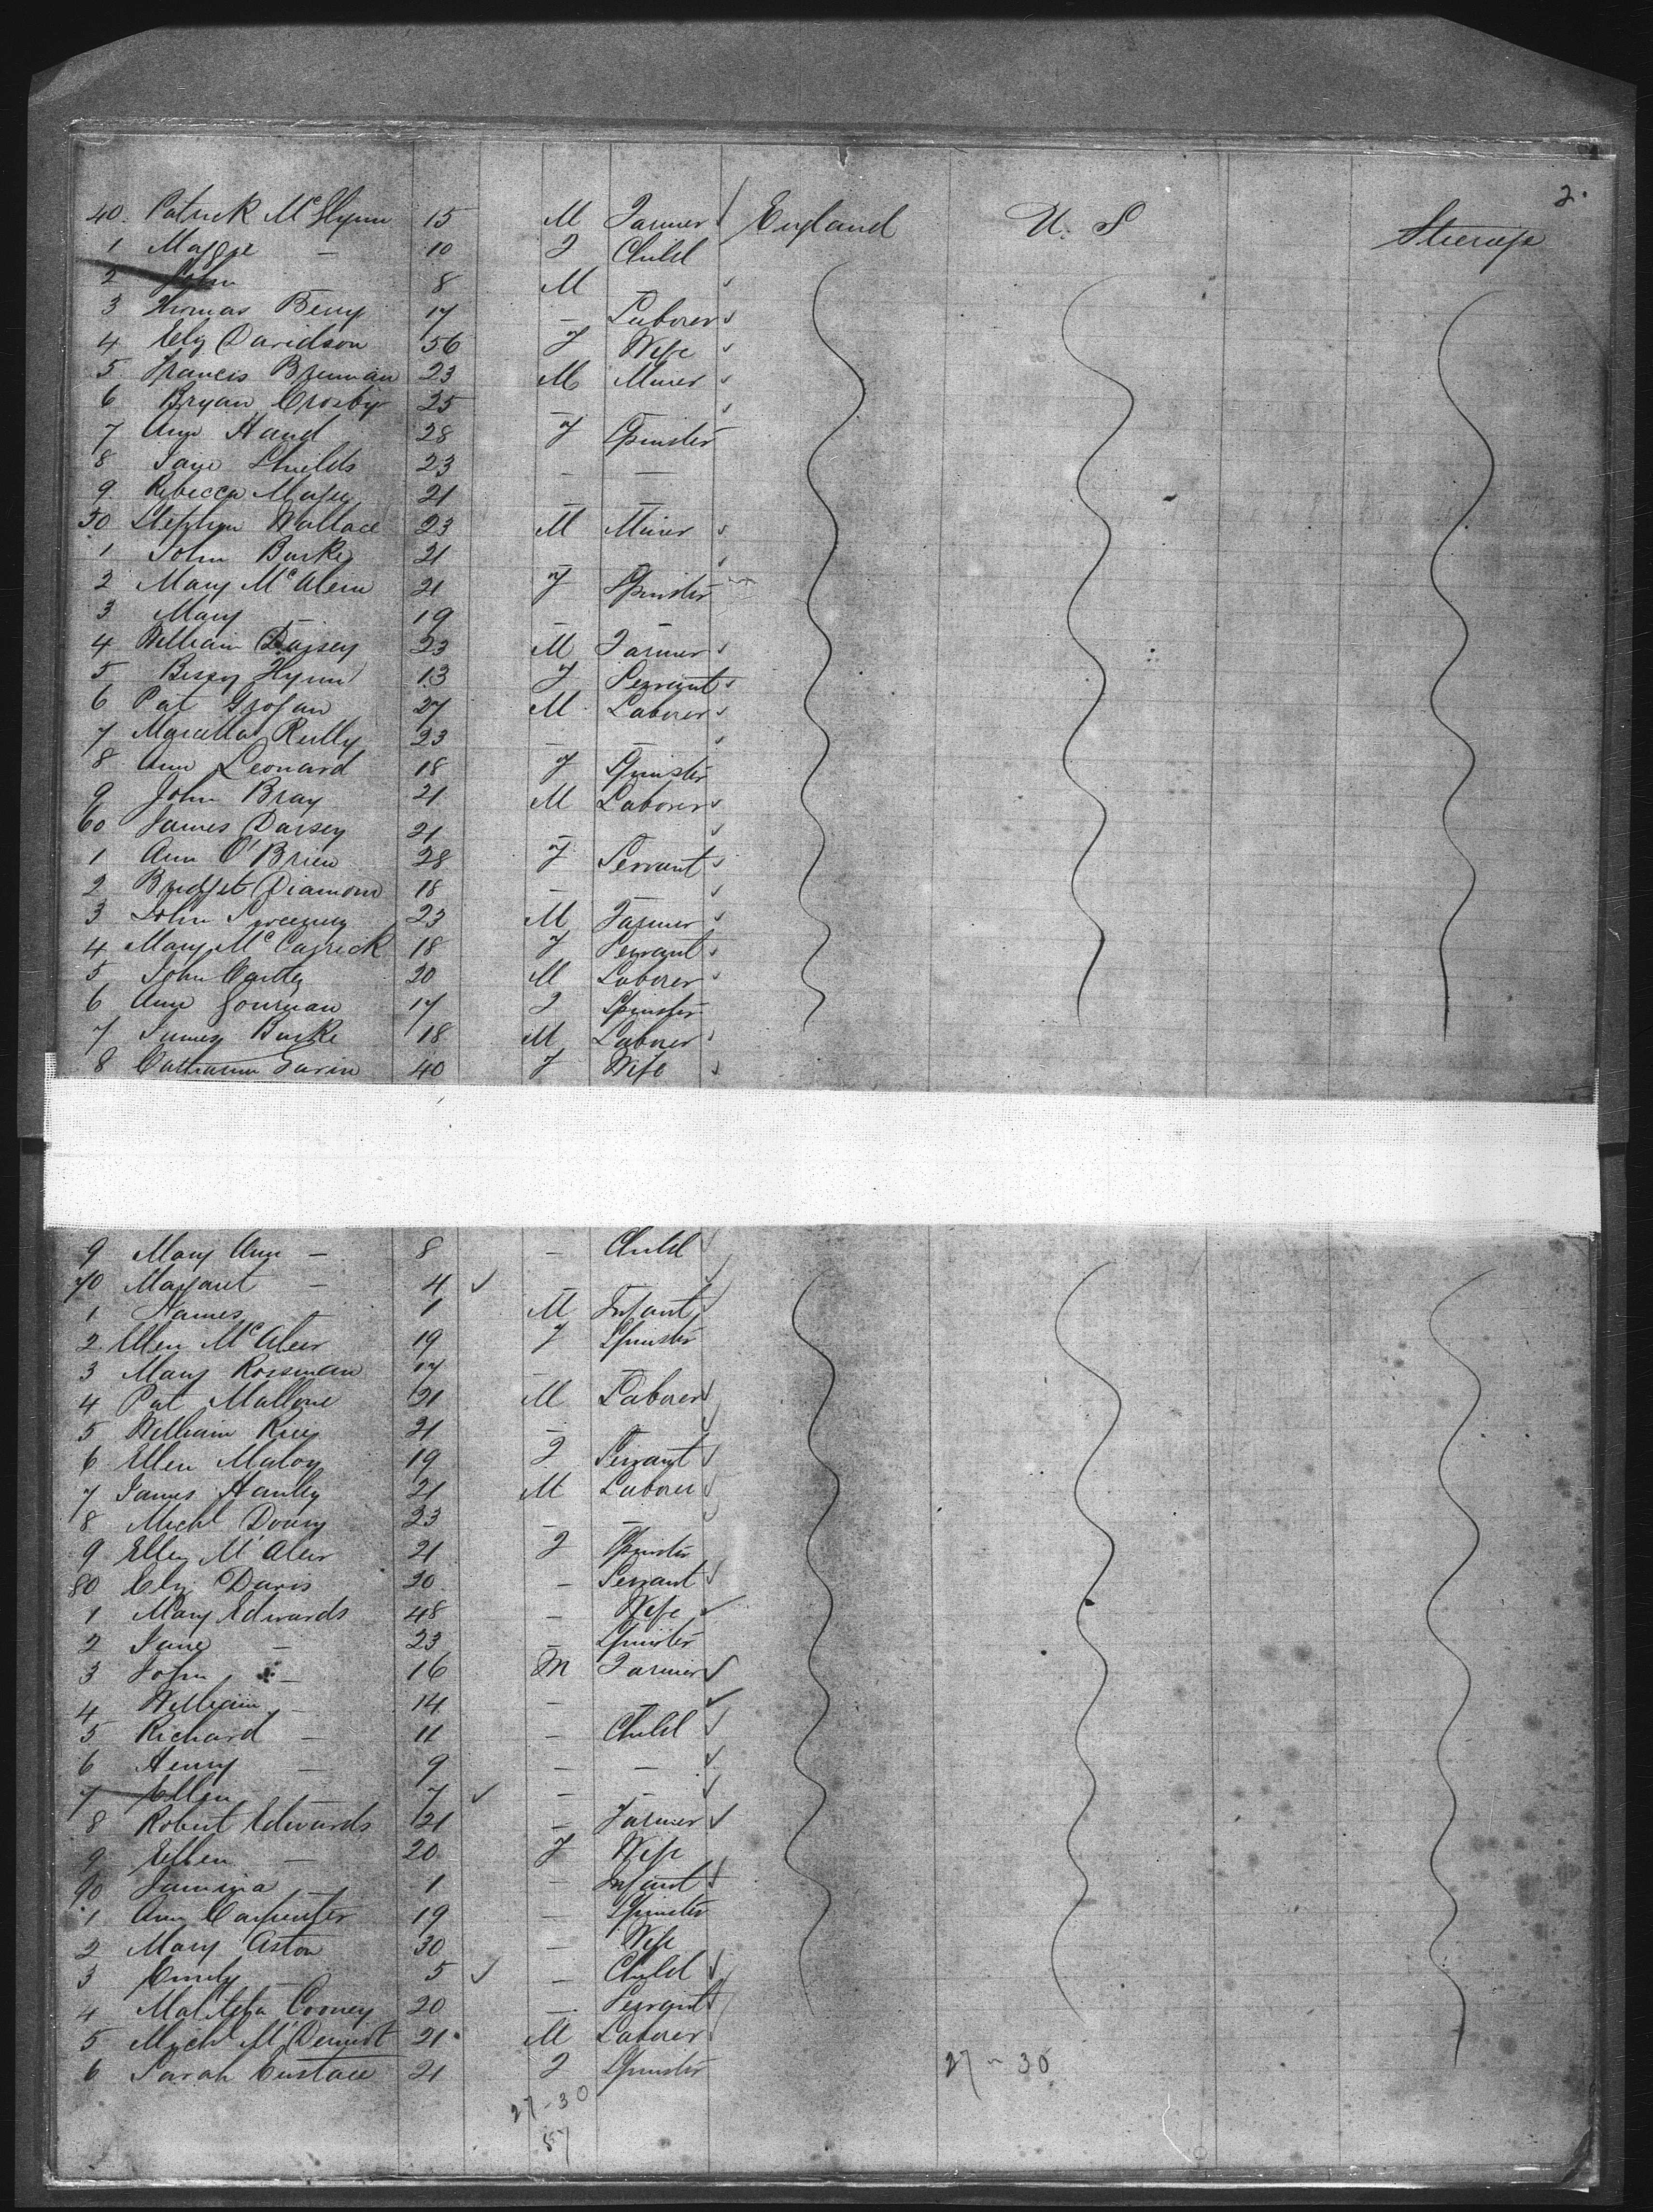 2.
40. Patrick McGlynn 15 M Farmer England U. S Steerage
1 Maggie — 10 F Child
2 John 8 M —
3 Thomas Berry 17 — Laborer
4 Eliz Davidson 56 F Wife
5 Francis Brennan 23 M Miner
6 Bryan Crosby 25 — —
7 Ann Hand 28 F Spinster
8 Jane Shields 23 — —
9. Rebecca 21
50 Stephen Wallace 23 M Miner
1 John Burke 21 — —
2 Mary McAleer 21 F Spinster
3 Mary — 19 — —
4 William Daisey 23 M Farmer
5 Bessy Flynn 13 F Servant
6 Pat Grogan 27 M Laborer
7 Marcella Reilly 23 — —
8 Ann Leonard 18 F Spinster
9 John Bray 21 M Laborer
60 James Darsey 21 — —
1 Ann O'Brien 28 F Servant
2 Bridget Diamond 18 — —
3 John Sweeney 23 M Farmer
4 Mary McCarrick 18 F Servant
5 John Carthy 20 M Laborer
6 Ann Gournan 17 F Spinster
7 James Burke 18 M Laborer
8 Catharine Gavin 40 F Wife
9 Mary Ann — 8 — Child
70 Margaret — 4 — —
1 James 1 M Infant
2. Ellen McAleer 19 F Spinster
3 Mary Rossman 17 — —
4 Pat Mallone 21 M Laborer
5 William King 21 — —
6 Ellen Maloy 19 F Servant
7 James Hanley 21 M Laborer
8 Michl 23 — —
9 Ellen McAleer 21 F Spinster
80 Eliz Davis 20 — Servant
1 Mary Edwards 48 — Wife
2 Jane — 23 — Spinster
3 John — 16 M Farmer
4 William — 14 — —
5 Richard — 11 — Child
6 Henry — 9 — —
7 Ellen — 7 — —
8 Robert Edwards 21 — Farmer
9 Ellen — 20 F Wife
90 Jamima — 1 — Infant
1 Ann Carpenter 19 — Spinster
2 Mary Aston 30 — Wife
3 Emily — 5 — Child
4 Malitha Cooney 20 — Servant
5 Michl McDermot 21 M Laborer
6 Sarah Eustace 21 F Spinster
27-30
27-30
57